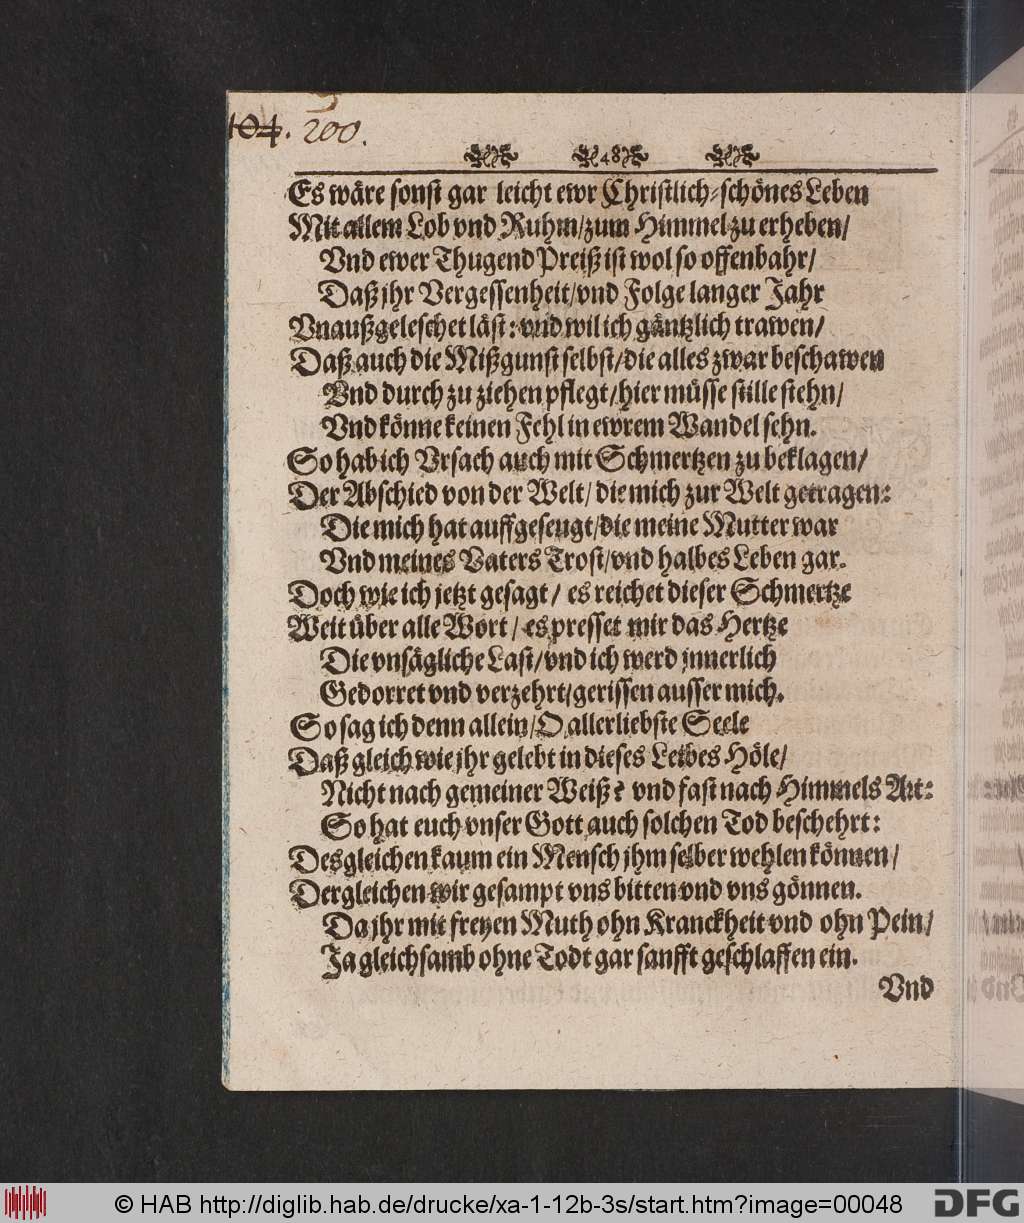 104. 200.
48
Es wäre sonst gar leicht ewr Christlich-schönes Leben
Mit allem Lob vnd Ruhm/zum Himmel zu erheben/
Vnd ewer Thugend Preiß ist wol so offenbahr/
Daß jhr Vergessenheit/vnd Folge langer Jahr
Vnaußgeleschet läst: vnd wil ich gäntzlich trawen/
Daß auch die Mißgunst selbst/die alles zwar beschawen
Vnd durch zu ziehen pflegt/hier müsse stille stehn/
Vnd könne keinen Fehl in ewrem Wandel sehn.
So hab ich Vrsach auch mit Schmertzen zu beklagen/
Der Abschied von der Welt/ die mich zur Welt getragen:
Die mich hat auffgeseugt/die meine Mutter war
Vnd meines Vaters Trost/vnd halbes Leben gar.
Doch wie ich jetzt gesagt/ es reichet dieser Schmertze
Weit über alle Wort/ es presset mir das Hertze
Die vnsägliche Last/vnd ich werd jnnerlich
Gedorret vnd verzehrt/gerissen ausser mich.
So sag ich denn allein/O allerliebste Seele
Daß gleich wie jhr gelebt in dieses Leibes Höle/
Nicht nach gemeiner Weiß? vnd fast nach Himmels Art:
So hat euch vnser Gott auch solchen Tod beschehrt:
Desgleichen kaum ein Mensch jhm selber wehlen können/
Dergleichen wir gesampt vns bitten vnd vns gönnen.
Da jhr mit freyen Muth ohn Kranckheit vnd ohn Pein/
Ja gleichsamb ohne Todt gar sanfft geschlaffen ein.
Vnd
© HAB http://diglib.hab.de/drucke/xa-1-12b-3s/start.htm?image=00048
DFG